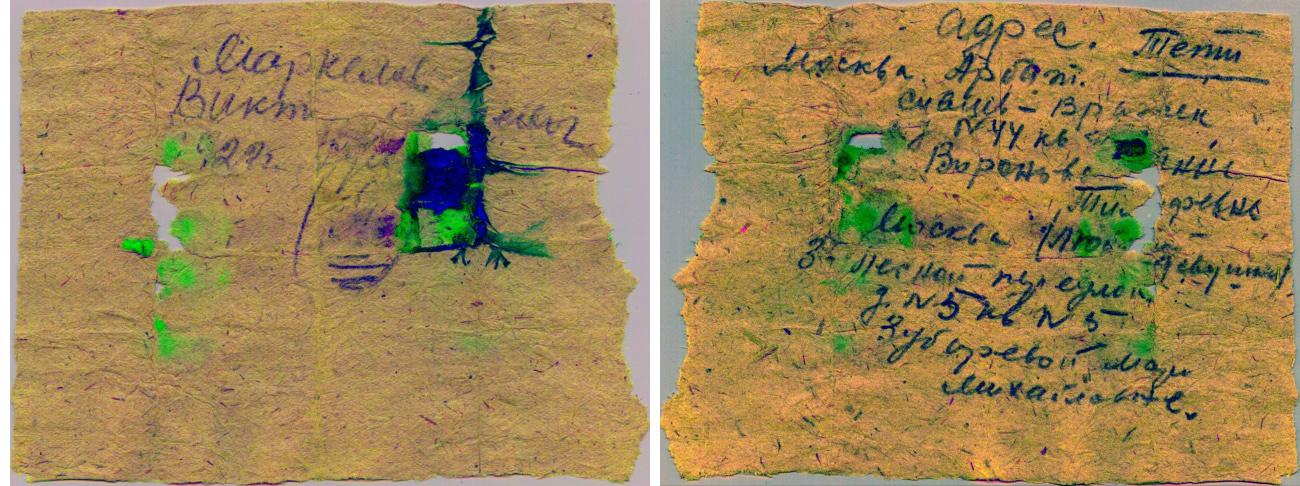 Маркелов
Викт евич
922г.
Адрес. Тети
Москва. Арбат.
сивцев - Вражек
д. N 44 кв
Воронов
Москва
3й Лесной переулок девушки
д. N 5 кв N 5
Зубаревой Мари
Михайловне.